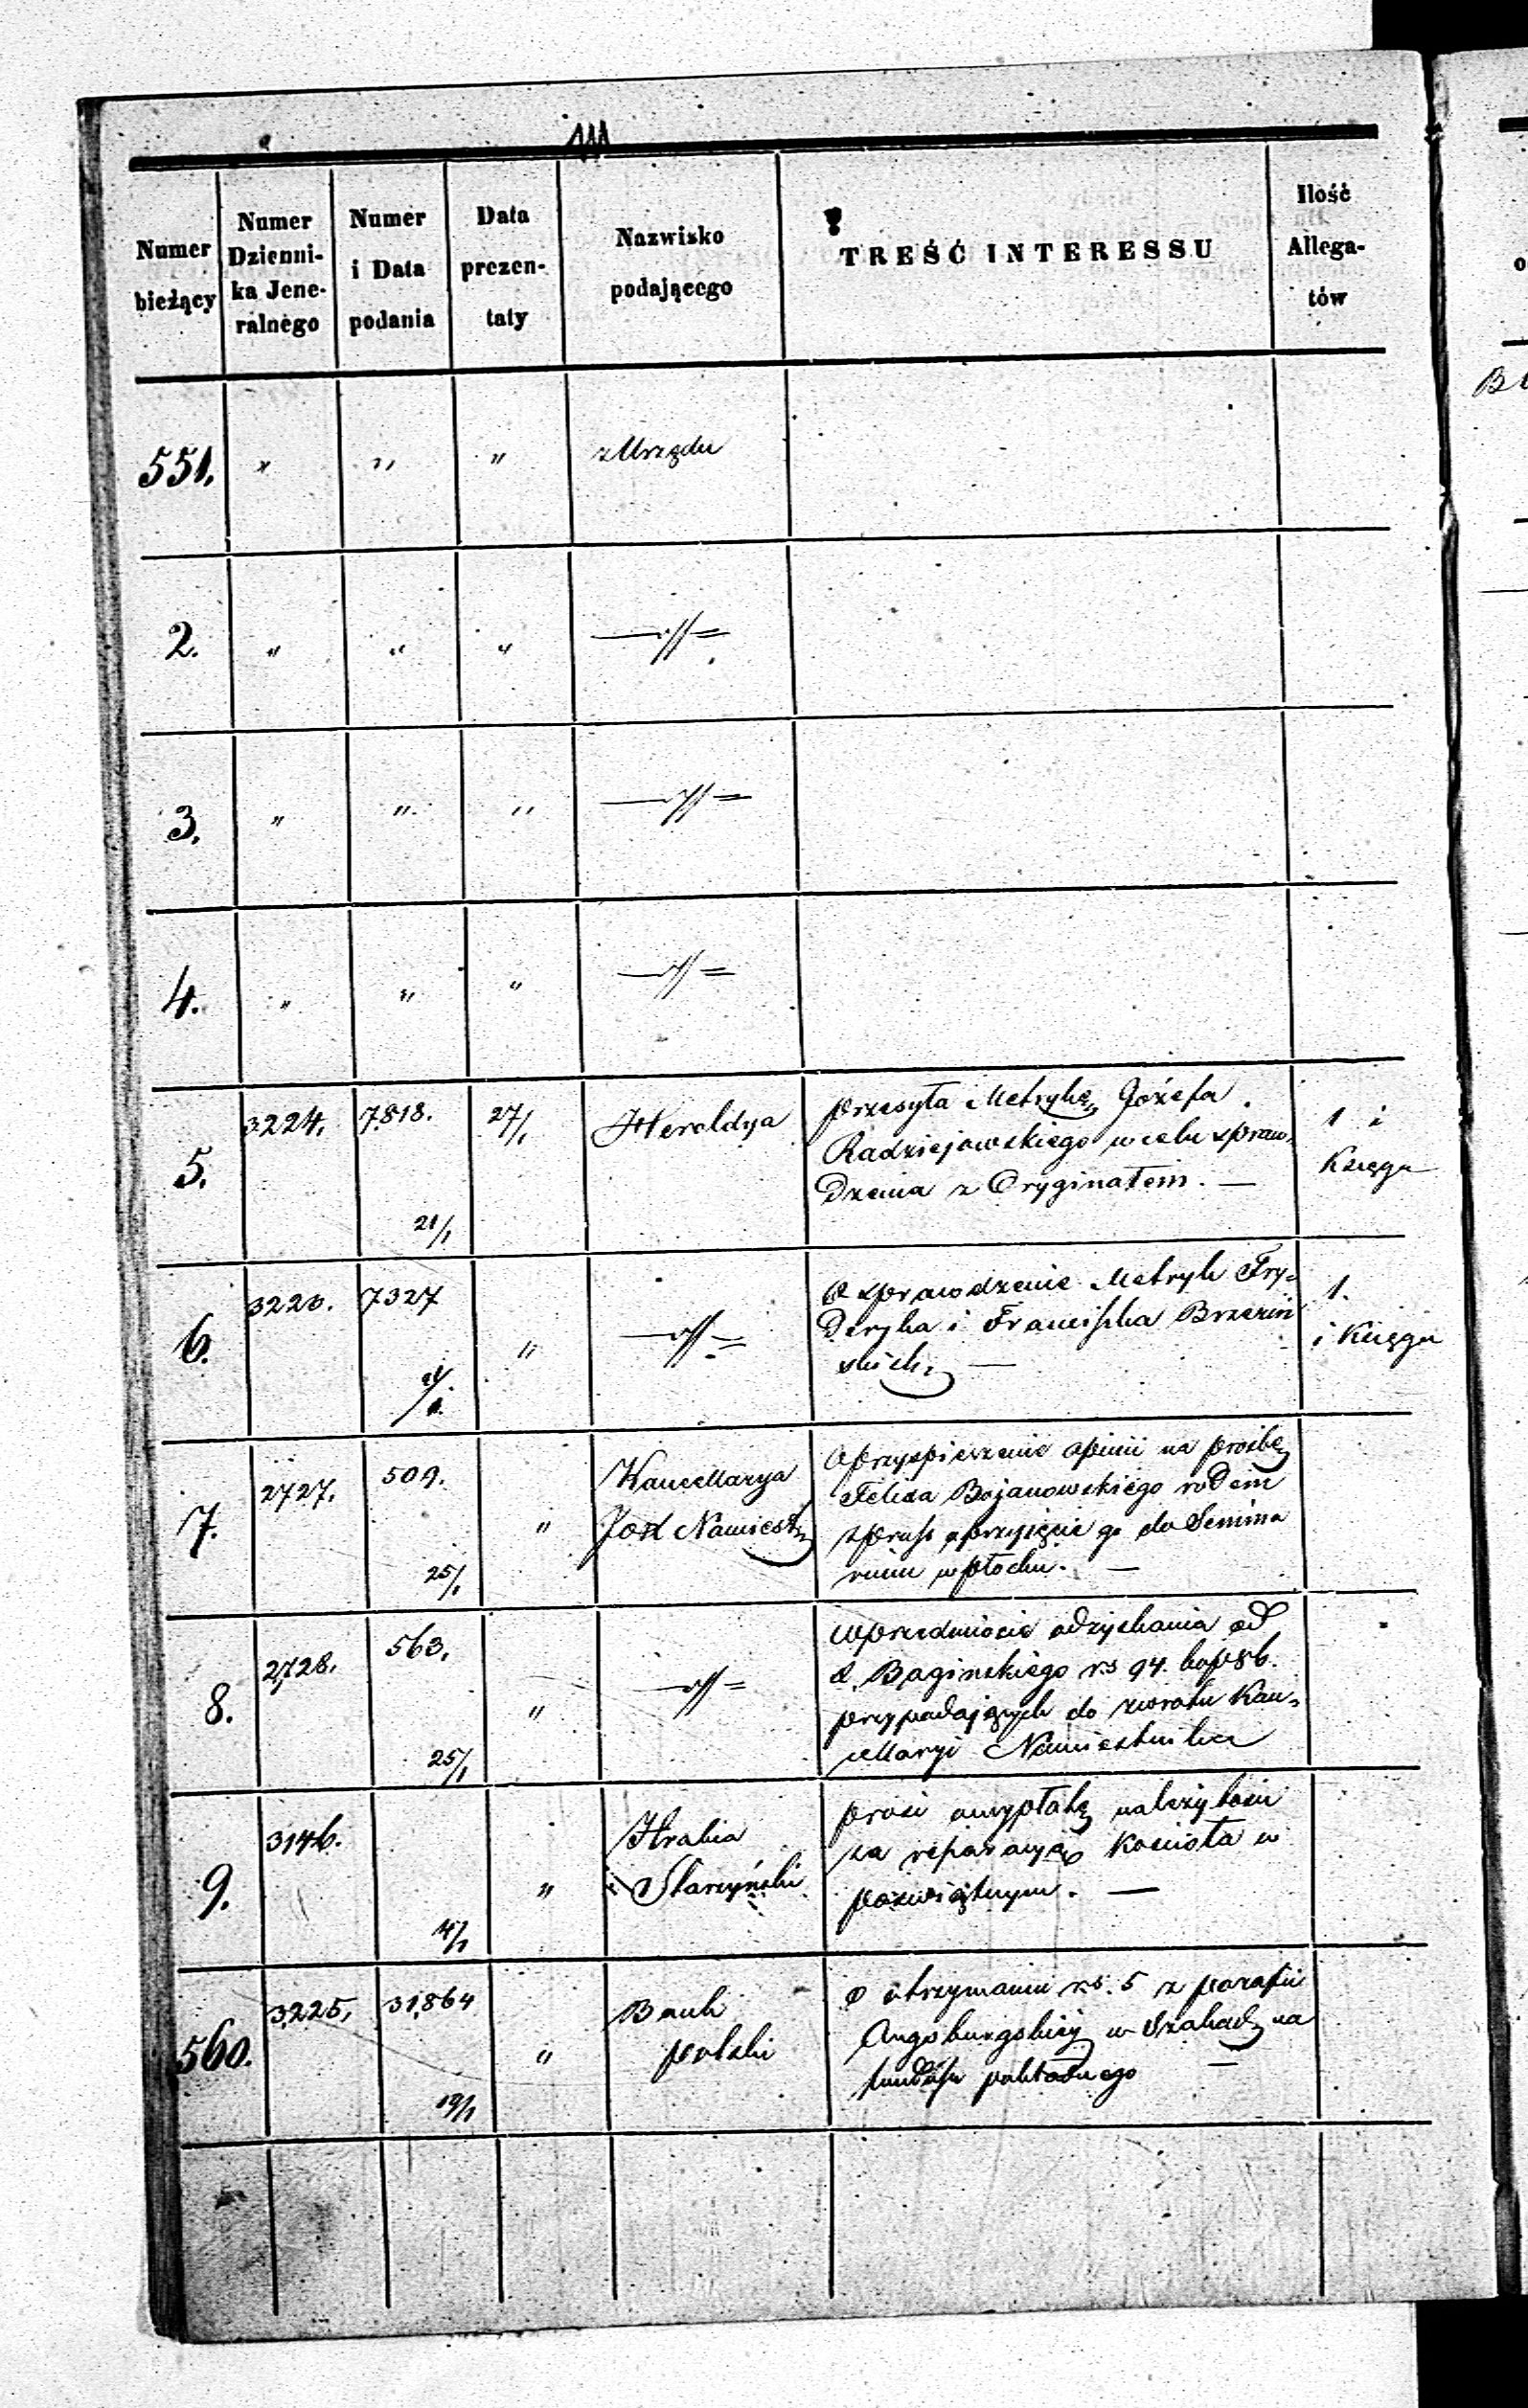 Numer bieżący
Numer Dzienni-
ka Jene-
ralnego
Numer
i Data
podania
Data
prezen-
taty
Nazwisko
podającego
TREŚĆ INTERESSU
Ilość
Allega-
tów
551. " " " z Urzędu
2. " " " —"—
3. " " " —"—
4. " " " —"—
5. 3224. 7818. 21/1 27/1 Heroldya
przesyła Metrykę Józefa
Radziejowskiego w celu spraw-
dzenia z Oryginałem. —
1 i
Księga
6. 7327 " —"—
O sprawdzenie Metryk Fry-
deryka i Franciszka Brzeziń
skich. —
1.
i Księga
7. 2727. 509. 25/1 " Kancellarya
Jox Namiest
o przyspieszenie opinii na prośbę
Felixa Bojanowskiego rodem
z Prus o przyjęcie go do Semina
rium w płocku. —
8. 2728. 563. 25/1 " —"—
w przedmiocie odzyskania od
X. Baginskiego rs 94. kop 86.
przypadających do zwrotu Kan-
cellaryi Namiestnika
9. 3146. " Hrabia
Starzyński
prosi o wypłatę należytości
za reparacyą Kościoła w
poświętnym. —
560. 3225, 31,864 19/1 " Bank
polski
o otrzymaniu rs. 5 z parafii
Augsburgskiej w na
fundusz pokładnego —